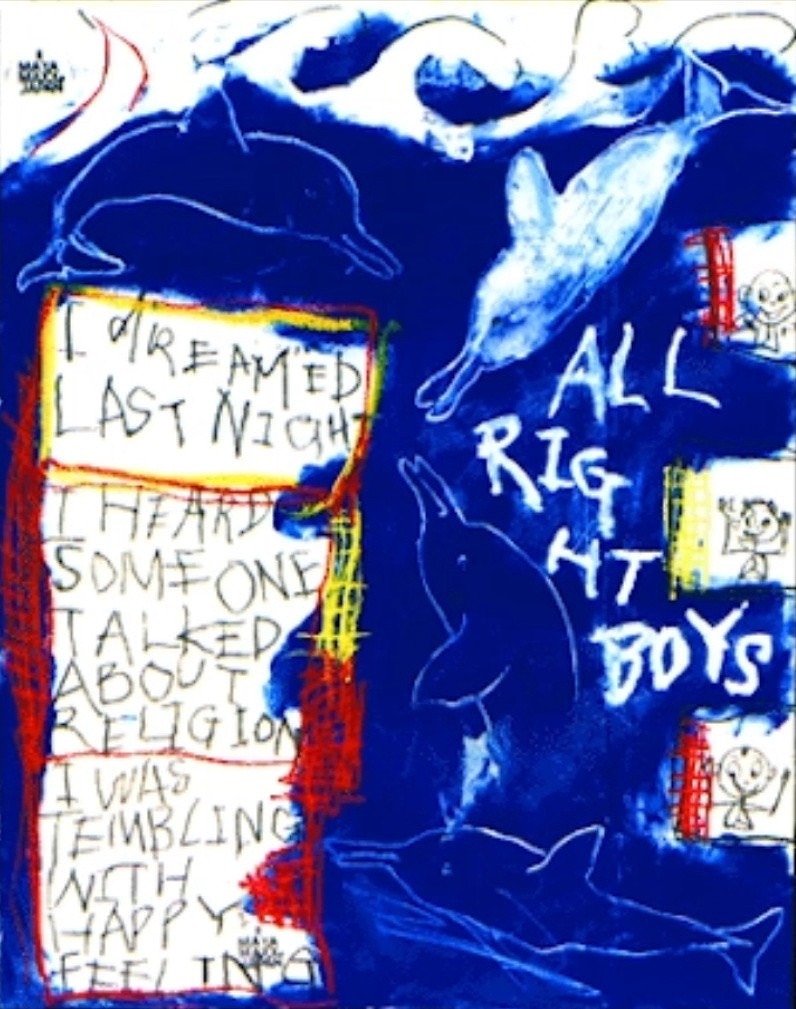 I dREAM"ED
LAST NIGHT
I HEARD
SOMEONE
TALKED
ABOUT
RELIGION
I WAS
TEMBLING
WITH
HAPPY
FEELING
ALL
RIG
HT
BOYS